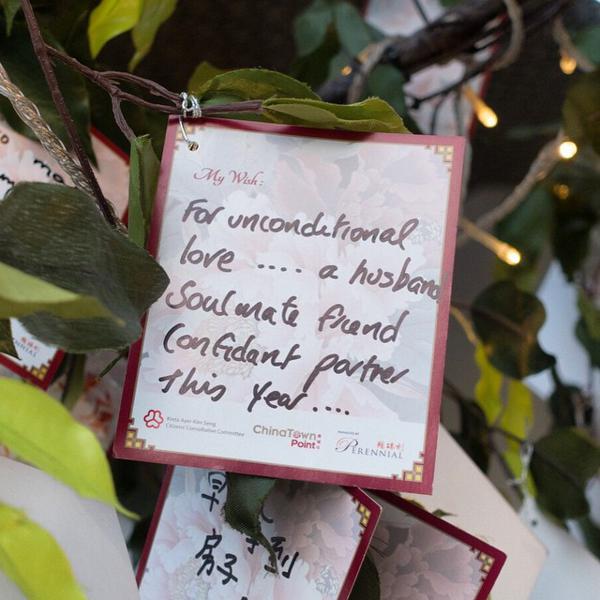 My Wish:
For unconditional
love .... a husband
Soulmate friend
Confidant partner
This year....
Kreta Ayer-Kim Seng
Citizens' Consultative Committee
ChinaTown
Point
MANAGED BY
PERENNIAL
鹏瑞利
早
房子 到
ERENNIAL